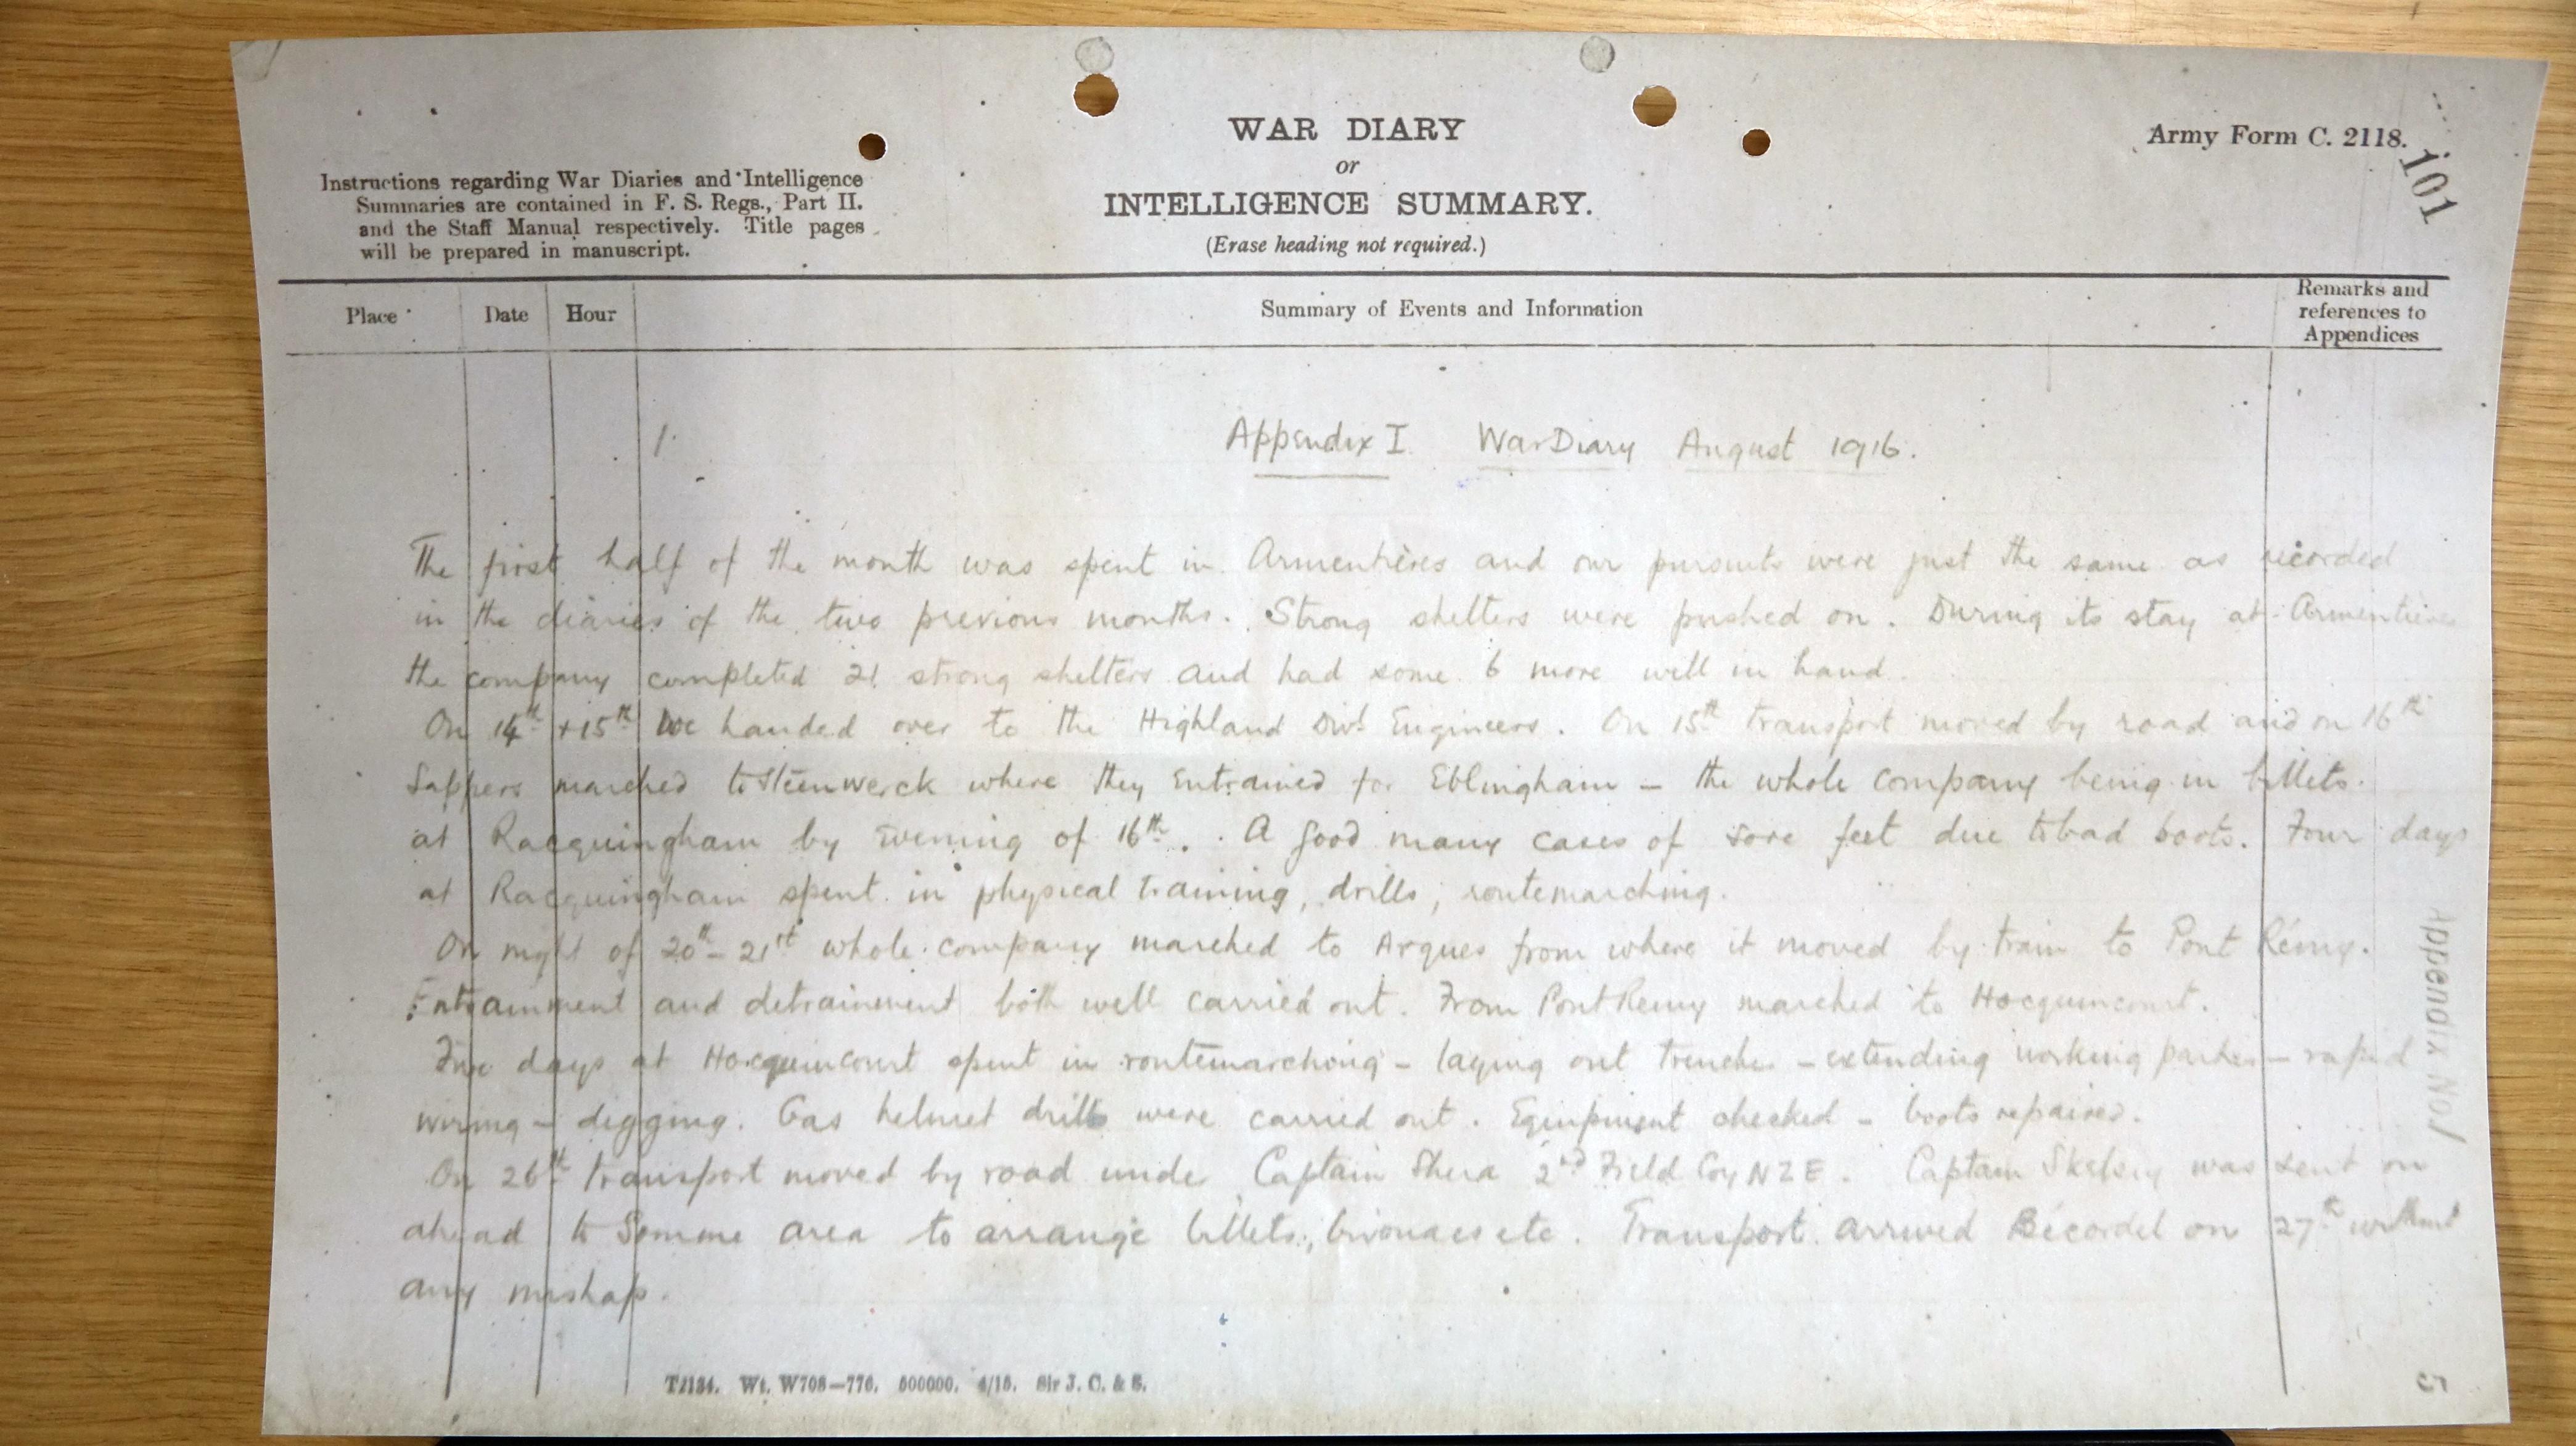 WAR DIARY
or
INTELLIGENCE SUMMARY.
(Erase heading not required.)
Army Form C. 2118.
101
Instructions regarding War Diaries and Intelligence
Summaries are contained in F. S. Regs., Part II.
and the Staff Manual respectively. Title pages
will be prepared in manuscript.
Place Date Hour Summary of Events and Information Remarks and
references to
Appendices
1. Appendix I War Diary August 1916.
The first half of the month was spent in Armentières and our pursuits were just the same as recorded
in the diaries of the two previous months. Strong shelters were pushed on. During its stay at Armentieres
the company completed 21 strong shelters and had some 6 more well in hand.
On 14th + 15th we handed over to the Highland Divl Engineers. On 15th transport moved by road and on 16th
Sappers marched to Steenwerck where they Entrained for Eblingham – the whole company being in billets.
at Racquingham by Evening of 16th. A good many cases of sore feet due to bad boots. Four days
at Racquingham spent in physical training, drills, routemarching.
On night of 20th – 21st whole company marched to Arques from where it moved by train to Pont Rémy.
Entrainment and detrainment both well carried out. From Pont Remy marched to Hocquincourt.
Five days at Hocquincourt spent in routemarching – laying out trenches – extending working parties – rapid
wiring – digging. Gas helmet drills were carried out. Equipment checked – boots repaired.
On 26th transport moved by road under Captain Shera 2nd Field Coy NZE. Captain was sent on
ahead to Somme area to arrange billets, bivouacs etc. Transport arrived Bécordel on 27th without
any mishap.
Appendix No 1
T2134. Wt. W708—776. 500000. 4/15. Sir J. C. & S.